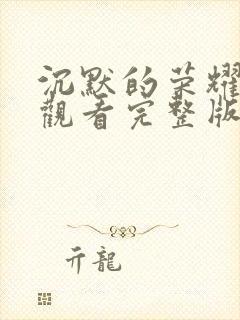 沉默的荣耀
觀看完整版
亓龍